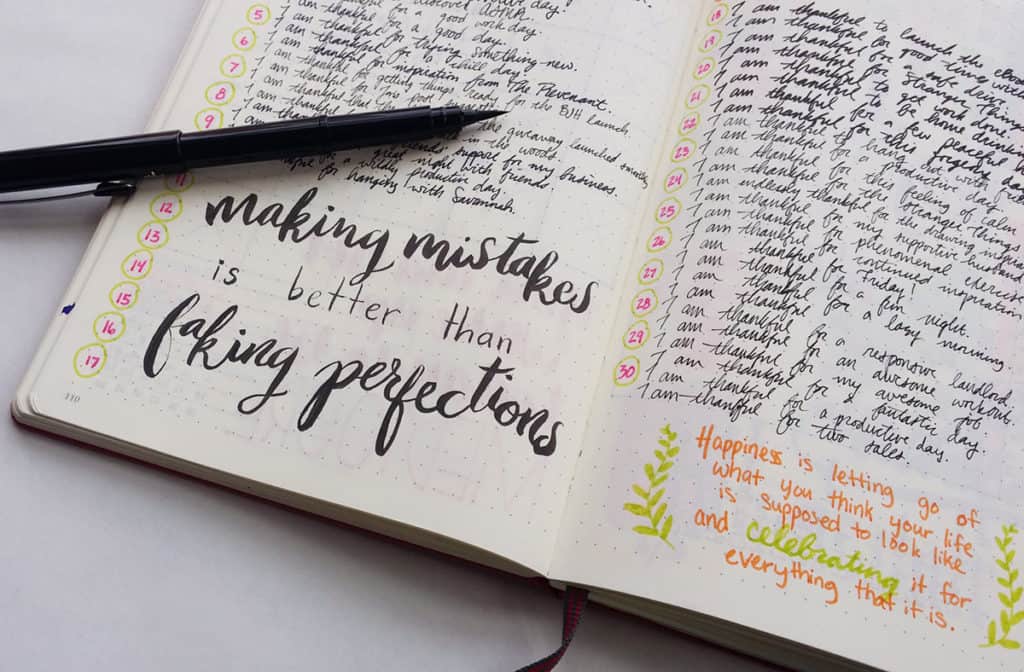 day.
for a good work day.
5 I am thankful for a good day.
6 I am thankful for trying something new.
7 I am thankful for chill day
8 I am thankful for inspiration from The Revenant.
9 I am thankful for getting things ready for the BJH launch.
I am thankful for two
I am thankful that the giveaway launched smoothly
in the woods.
friends' support for my business.
night with friends.
for a wildly productive day.
11 for hanging with Savannah.
12
13
14
15
16
17
making mistakes
is better than
faking perfections
110
18 I am thankful to launch the ebook
19 I am thankful for good times with
20 I am thankful for a safe drive.
21 I am thankful for Stranger Things
22 I am thankful to get work done.
23 I am thankful to be home
24 I am thankful for a few peaceful
25 I am thankful for this
26 I am thankful to hang out with
27 I am thankful for a productive day.
28 I am thankful for this feeling of calm
29 I am thankful for Stranger Things
30 I am endlessly thankful for the drawing
I am thankful for my supportive husband
I am thankful for phenomenal exercise
I am thankful for continued inspiration
I am thankful for Friday!
I am thankful for a fun night.
I am thankful for a lazy morning
I am thankful for a responsive landlord
I am thankful for an awesome workout.
I am thankful for my awesome job.
I am thankful for a fantastic day.
I am thankful for a productive day.
I am thankful for two sales.
Happiness is letting go of
what you think your life
is supposed to look like
and celebrating it for
everything that it is.